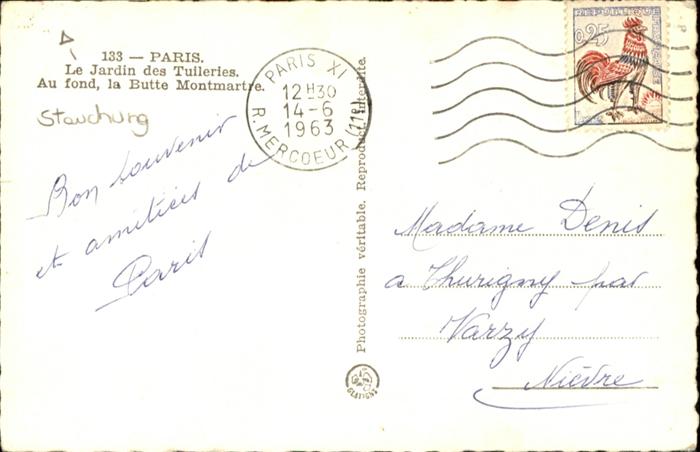 133 — PARIS.
Le Jardin des Tuileries.
Au fond, la Butte Montmartre.
Stauchung
Bon souvenir
et amitiées de
Paris
PARIS XI
12H30
14-6
1963
R. MERCOEUR (11e)
0,25
Photographie véritable. Reproduct. interdite.
Madame Denis
a Thurigny par
Varzy
Nièvre